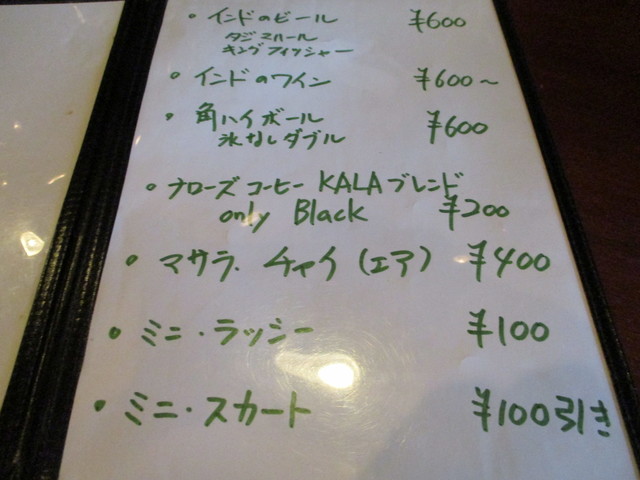 ・インドのビール ¥600
タジマハール
キングフィッシャー
・インドのワイン ¥600～
・角ハイボール
氷なしダブル ¥600
・ナローズコーヒー KALAブレンド
only Black ¥200
・マサラ.チャイ(エア) ¥400
・ミニ・ラッシー ¥100
・ミニ・スカート ¥100引き